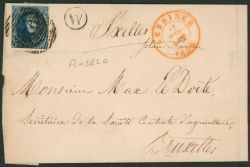 W
Ixelles
LESSINES
FL-BELG
Monsieur Max Le Docte,
Secrétaire de la Société Centrale d'agriculture,
Bruxelles